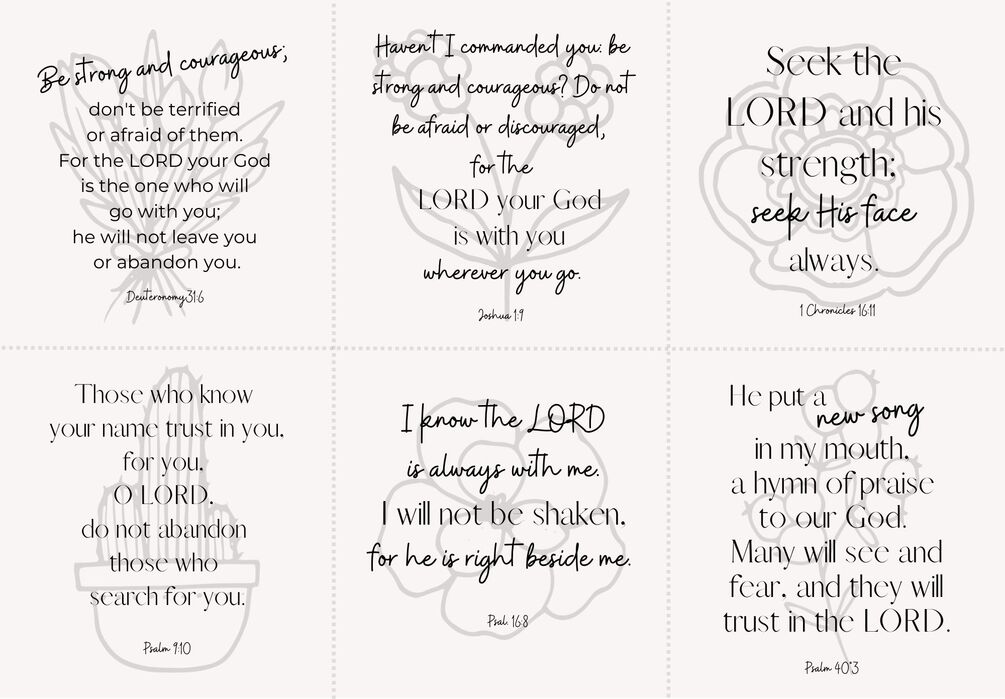 Be strong and courageous;
don't be terrified
or afraid of them.
For the LORD your God
is the one who will
go with you;
he will not leave you
or abandon you.
Deuteronomy 31:6
Haven't I commanded you: be
strong and courageous? Do not
be afraid or discouraged,
for the
LORD your God
is with you
wherever you go.
Joshua 1:9
Seek the
LORD and his
strength;
seek His face
always.
1 Chronicles 16:11
Those who know
your name trust in you,
for you,
O LORD,
do not abandon
those who
search for you.
Psalm 9:10
I know the LORD
is always with me.
I will not be shaken,
for he is right beside me.
Psal. 16:8
He put a
new song
in my mouth,
a hymn of praise
to our God.
Many will see and
fear, and they will
trust in the LORD.
Psalm 40:3